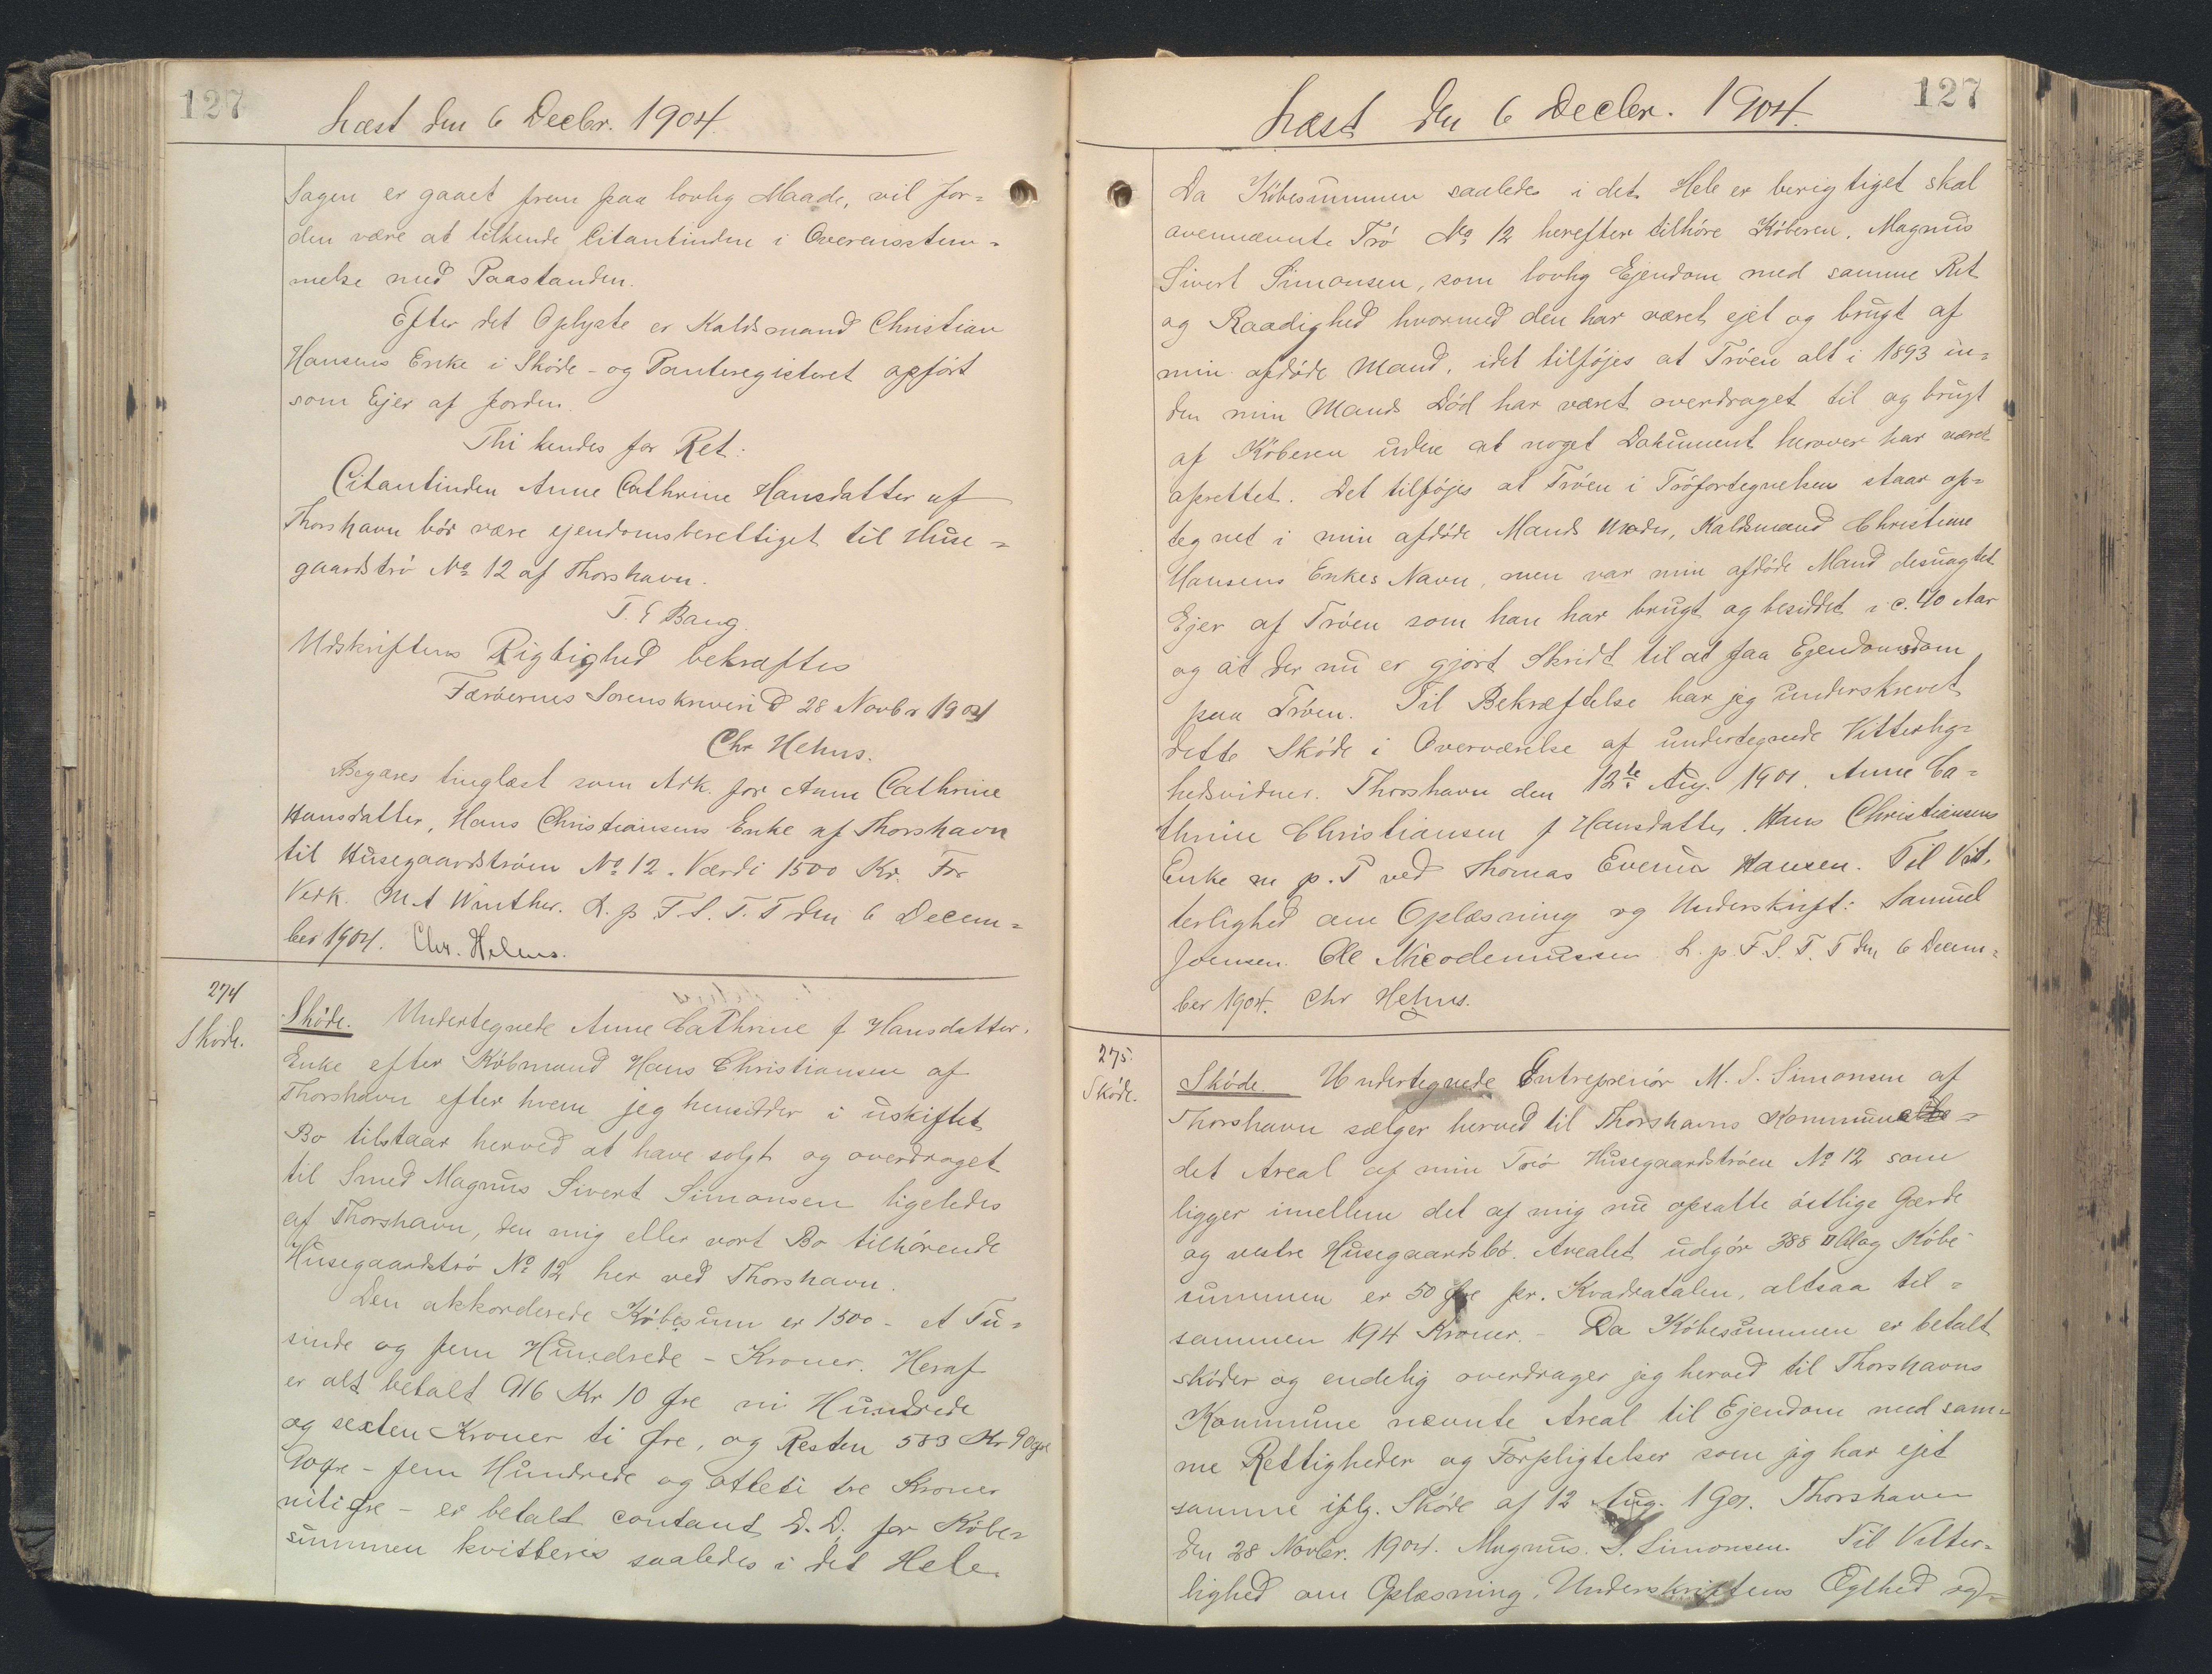 127
Læst den 6 Decbr. 1904.
Sagen er gaaet frem paa lovlig Maade, vil Jor-
den være at tilkende Citantinden i Overensstem-
melse med Paastanden.
Efter det Oplyste er Kaldsmand Christian
Hansens Enke i Skøde- og Panteregisteret opført
som Ejer af Jorden.
Thi kendes for Ret:
Citantinden Anne Cathrine Hansdatter af
Thorshavn bør være ejendomsberettiget til Huse-
gaardstrø No 12 af Thorshavn.
T. E Bang.
Udskriftens Rigtighed bekræftes
Færøernes Sorenskriveri D 28 Novbr 1904
Chr Helms.
Begæres tinglæst som Adk. for Anne Cathrine
Hansdatter, Hans Christiansens Enke af Thorshavn
til Husegaardstrøen No 12. Værdi 1500 Kr. For
Vedk. M A Winther. L. p F. S. T. T den 6 Decem-
ber 1904. Chr. Helms.
274
Skøde.
Skøde. Undertegnede Anne Cathrine f Hansdatter,
Enke efter Købmand Hans Christiansen af
Thorshavn efter hvem jeg hensidder i uskiftet
Bo tilstaar herved at have solgt og overdraget
til Smed Magnus Sivert Simonsen ligeledes
af Thorshavn, den mig eller vort Bo tilhørende
Husegaardstrø No 12 her ved Thorshavn.
Den akkorderede Købesum er 1500 - et Tu-
sinde og fem Hundrede - Kroner. Heraf
er alt betalt 916 Kr 10 Øre ni Hundrede
og sexten Kroner ti Øre, og Resten 583 Kr 90 Øre
90 Øre - fem Hundrede og otteti tre Kroner
niti Øre - er betalt contant D. D. for Købe-
summen kvitteres saaledes i det Hele.
127
Læst den 6 Decbr. 1904.
Da Købesummen saaledes i det Hele er berigtiget skal
ovennævnte Trø No 12 herefter tilhøre Køberen, Magnus
Sivert Simonsen, som lovlig Ejendom med samme Ret
og Raadighed hvormed den har været ejet og brugt af
min afdøde Mand, idet tilføjes at Trøen alt i 1893 in-
den min Mands Død har været overdraget til og brugt
af Køberen uden at noget Dokument herover har været
oprettet. Det tilføjes at Trøen i Trøfortegnelsen staar op-
tegnet i min afdøde Mands Moder, Kaldsmand Christian
Hansens Enkes Navn, men var min afdøde Mand desuagtet
Ejer af Trøen som han har brugt og besiddet i c. 40 Aar
og at der nu er gjort Skridt til at faa Ejendomsdom
paa Trøen. Til Bekræftelse har jeg underskrevet
dette Skøde i Overværelse af undertegnede Vitterlig-
hedsvidner. Thorshavn den 12te Aug. 1901. Anne Ca-
thrine Christiansen f Hansdatter. Hans Christiansens
Enke m p. P ved Thomas Evenia Hansen. Til Vit-
terlighed om Oplæsning og Underskrift: Samuel
Joensen. Ole Nicodemussen L. p. F. S. T. T den 6 Decem-
ber 1904. Chr Helms.
275.
Skøde.
Skøde. Undertegnede Entreprenør M. S. Simonsen af
Thorshavn sælger herved til Thorshavns Kommune
det Areal af min Trø Husegaardstrøen No 12 som
ligger imellem det af mig nu opsatte østlige Gærde
og vestre Husegaardsbø. Arealet udgør 388 □ Al og Købe-
summen er 50 Øre pr. Kvadratalen, altsaa til-
sammen 194 Kroner. - Da Købesummen er betalt
skøder og endelig overdrager jeg herved til Thorshavns
Kommune nævnte Areal til Ejendom med sam-
me Rettigheder og Forpligtelser som jeg har ejet
samme iflg. Skøde af 12 Aug. 1901. Thorshavn
den 28 Novbr. 1904. Magnus. S. Simonsen. Til Vitter-
lighed om Oplæsning, Underskriftens Ægthed og